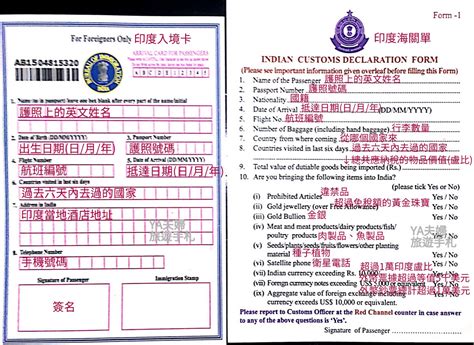 For Foreigners Only 印度入境卡
AB1504815320
ARRIVAL CARD FOR PASSENGERS
1. Name (as in passport) leave one box blank after every part of the name/initial
護照上的英文姓名
2. Date of Birth (DD/MM/YY)
3. Passport Number
出生日期(日/月/年)
護照號碼
4. Flight Number
5. Date of Arrival (DD/MM/YY)
航班編號
抵達日期(日/月/年)
6. Countries visited in last six days
過去六天內去過的國家
印度當地酒店地址
YA夫婦
旅遊手札
8. Telephone Number
手機號碼
Signature of Passenger
Immigration Stamp
簽名
Form -1
印度海關單
INDIAN CUSTOMS DECLARATION FORM
(Please see important information given overleaf before filling this Form)
1. Name of the Passenger 護照上的英文姓名
2. Passport Number 護照號碼
3. Nationality 國籍
4. Date of Arrival 抵達日期(日/月/年) (DD/MM/YYYY)
5. Flight No. 航班編號
6. Number of Baggage (including hand baggage) 行李數量
7. Country from where coming 從哪個國家來
8. Countries visited in last six days 過去六天內去過的國家
↓總共應納稅的物品價值(盧比)
9. Total value of dutiable goods being imported (Rs.)
10. Are you bringing the following items into India?
(please tick Yes or No)
(i) Prohibited Articles 違禁品 Yes / No
(ii) Gold jewellery (over Free Allowance) 超過免稅額的黃金珠寶 Yes / No
(iii) Gold Bullion 金銀 Yes / No
(iv) Meat and meat products/dairy products/fish/
poultry products 肉製品、魚製品 Yes / No
(v) Seeds/plants/seeds/fruits/flowers/other planting
material 種子植物 Yes / No
YA夫婦
旅遊手札
(vi) Satellite phone 衛星電話 Yes / No
(vii) Indian currency exceeding Rs. 10,000/- 超過1萬印度盧比 Yes / No
(viii) Foreign currency notes exceed US$ 5,000 or equivalent Yes / No
(ix) Aggregate value of foreign exchange including
currency exceeds US$ 10,000 or equivalent Yes / No
Please report to Customs Officer at the Red Channel counter in case answer
to any of the above questions is 'Yes'.
Signature of Passenger